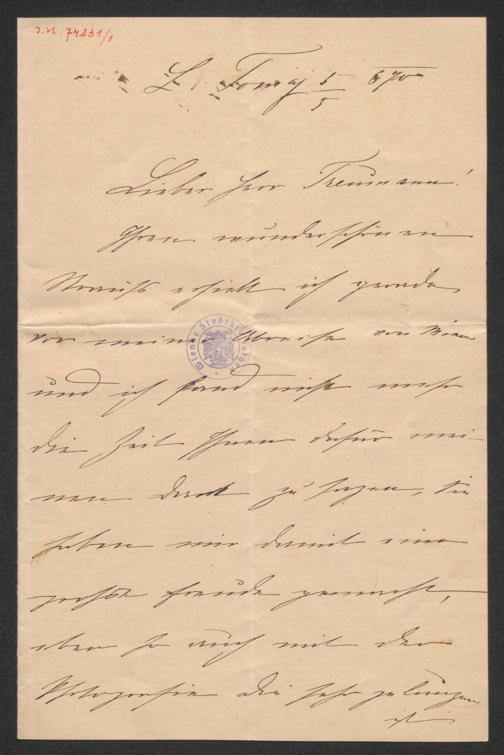 J.N. 74231/1
5/5 870
Lieber Herr Treumann!
Ihren wunderschönen
Strauß erhielt ich gerade
vor meiner Abreise von Wien
und ich fand nicht mehr
die Zeit Ihnen dafür mei
nen Dank zu sagen, Sie
haben mir damit eine
große Freude gemacht,
eben so auch mit der
Photografie die sehr gelungen
ist